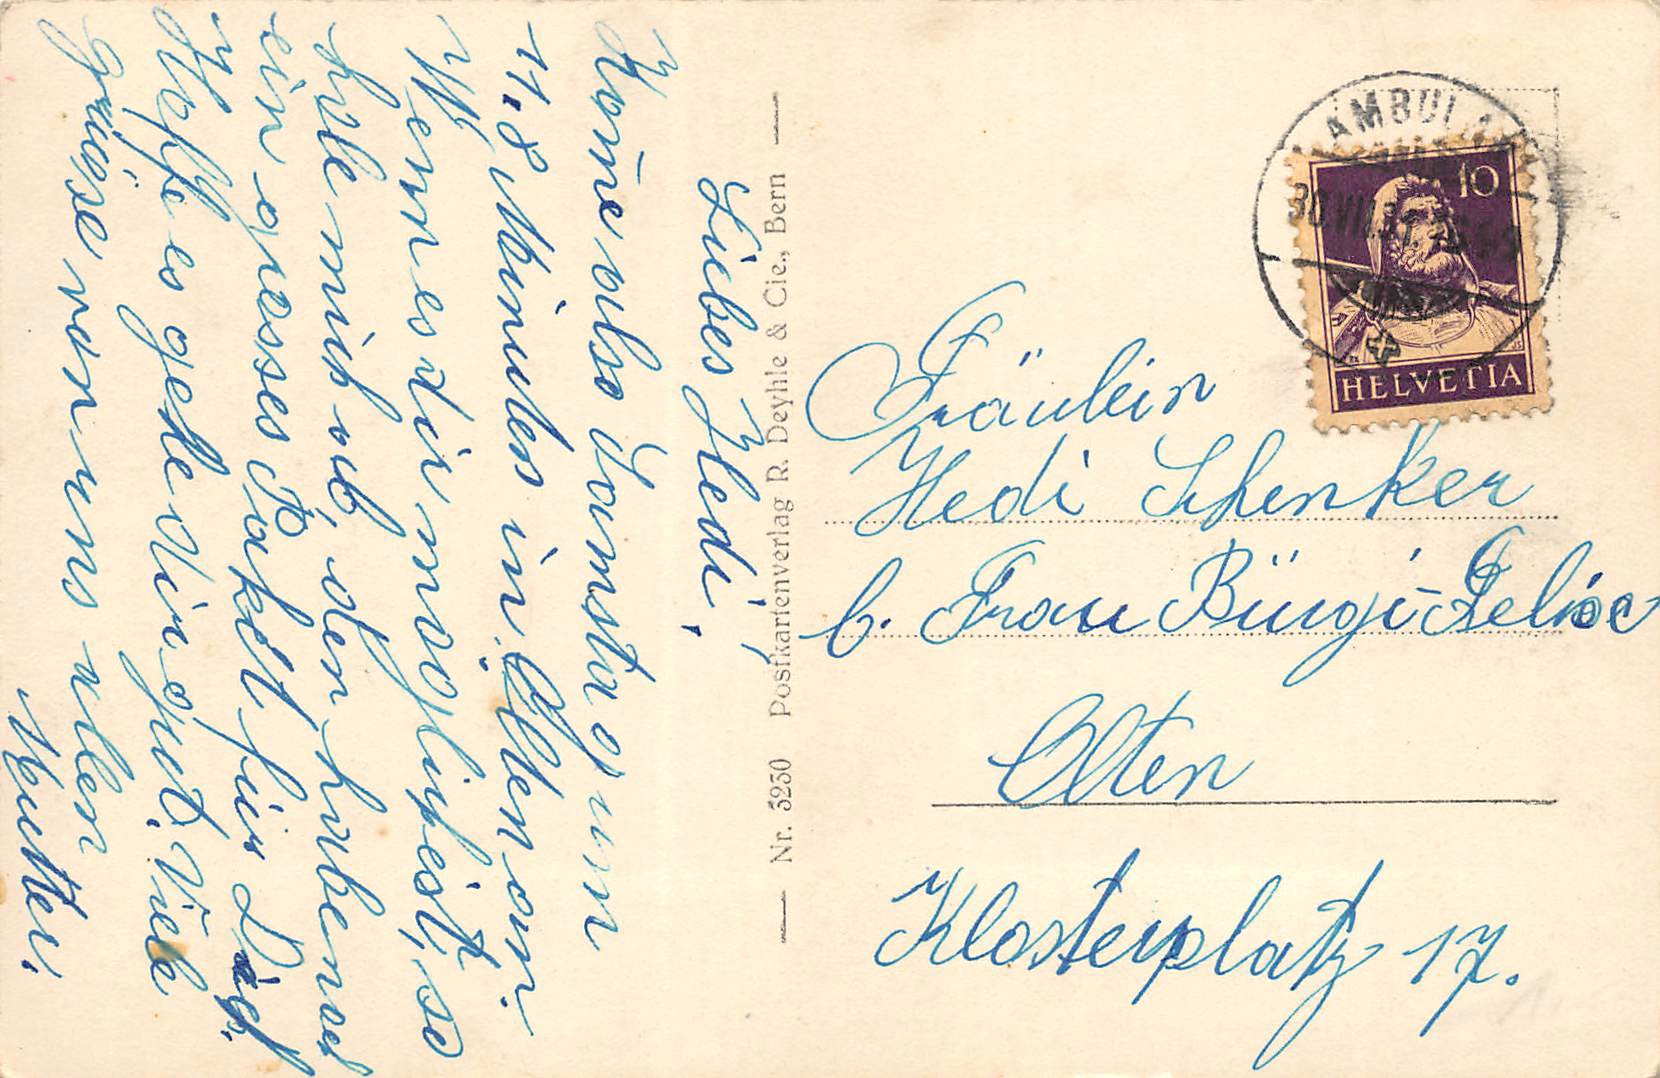 Liebes Hedi,
Kom̄e also Samstag um
11.8 Minutes in Olten an.
Wenn es dir möglich ist, so
hole mich ab, den habe noch
ein grosses Paket für Dich.
Hoffe es gehe Dir gut. Viele
Grüsse von uns allen
Mutter.
Nr. 5230 Postkartenverlag R. Deyhle & Cie., Bern
AMBULANT
30.VII.31
10
HELVETIA
Fräulein
Hedi Schenker
b. Frau Bürgi-
Olten
Klosterplatz 17.